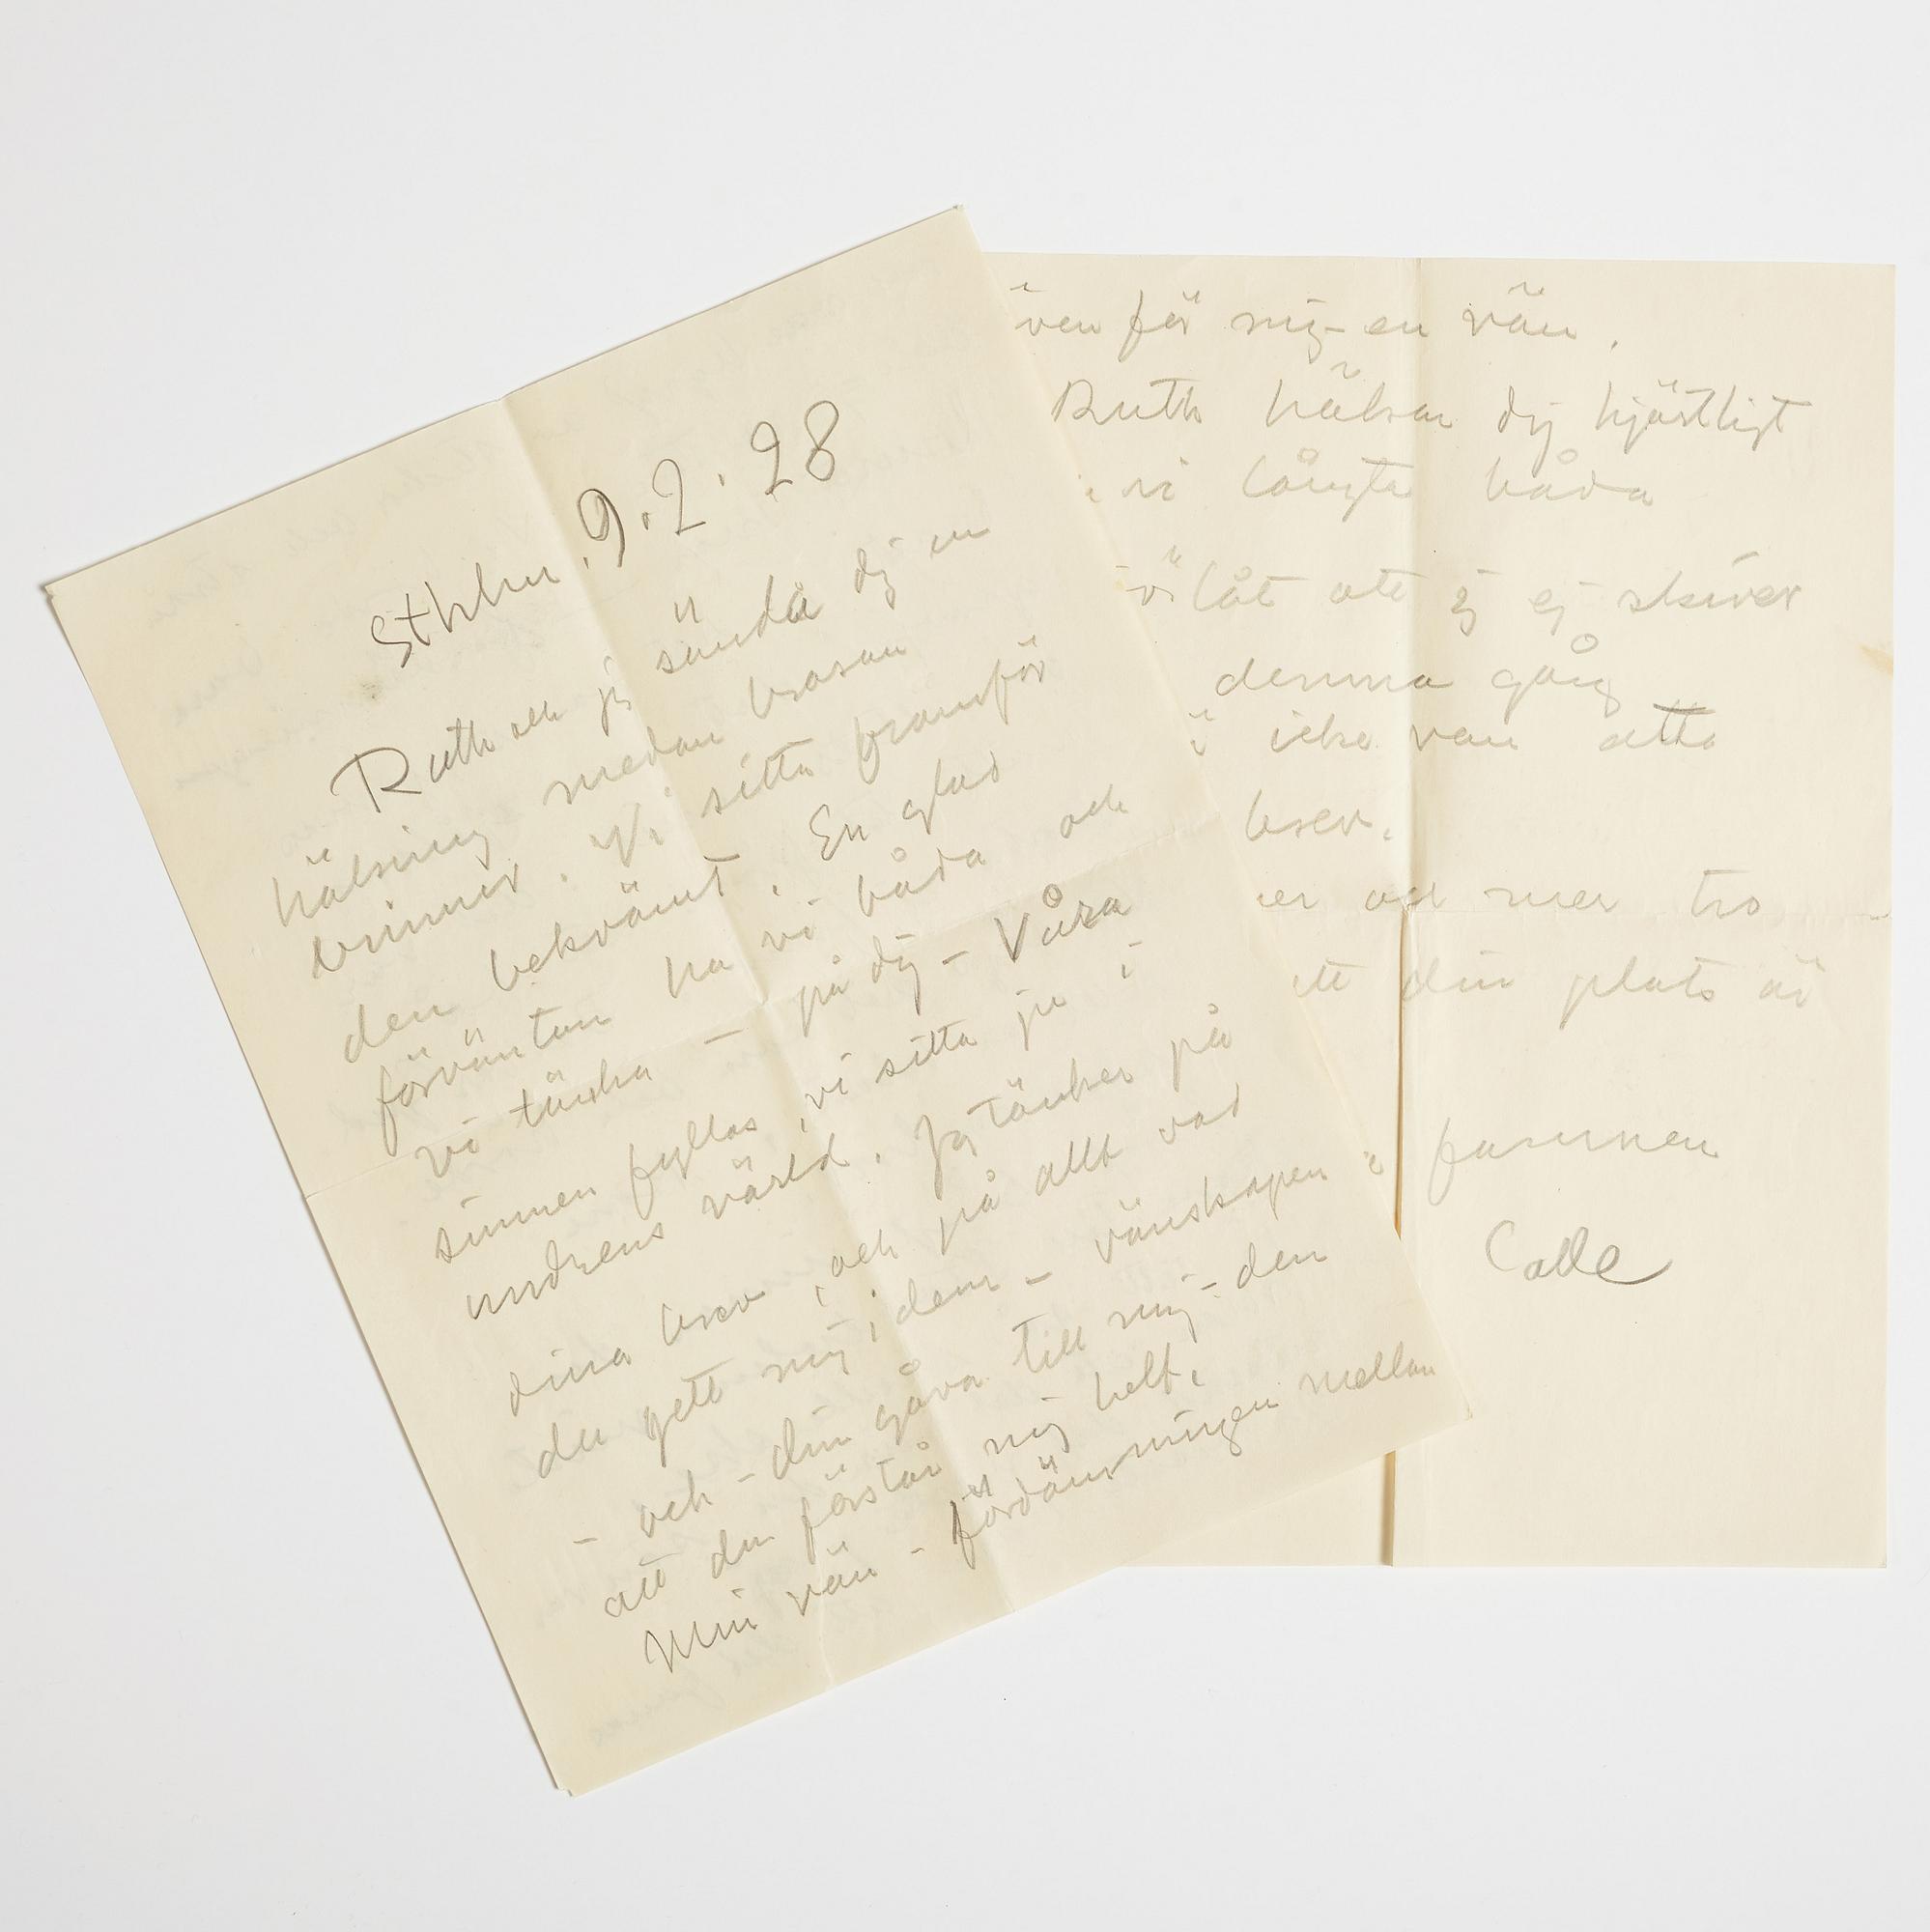 Sthlm. 9.2.28
Ruth och jg sända dig en
hälsning medan brasan
brinner. Vi sitta framför
den bekvämt. En glad
förväntan ha vi båda och
vi tänka — på dig – Våra
sinnen fyllas, vi sitta ju i
undrens värld. Jg tänker på
dina brev, och på allt vad
du gett mig i dem – vänskapen
– och – din gåva till mig – den
att du förstår mig helt.
Min vän – förtärningen mellan
även för mig – en vän.
Ruth hälsar dig hjärtligt
vi längta båda
låt att jg ej skriver
denna gång
icke van att
brev.
er och mer tro
att din plats är
famnen
Calle